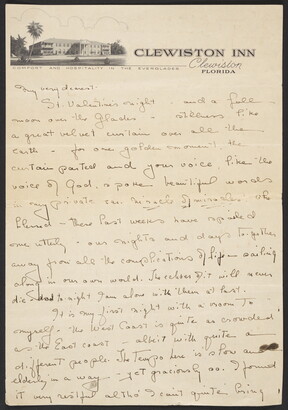 CLEWISTON INN
Clewiston
FLORIDA
COMFORT AND HOSPITALITY IN THE EVERGLADES
My very dearest:
St. Valentine's night - and a full
moon over the Glades - stillness like
a great velvet curtain over all the
earth - for one golden moment the
curtain parted and your voice, like the
voice of God, spoke beautiful words
in my private ear. Miracle of miracles. oh
Blessed - these last weeks have
me utterly - our nights and days together
away from all the complications of life sailing
along in our own world. The echoes of it will never
die and tonight I am alone with them at last.
It is my first night with a room to
myself - the West Coast is quite as crowded
as the East coast - albeit with quite
different people. The tempo here is slow and
elderly in a way - yet graciously so. I found
it very restful altho' I can't quite bring